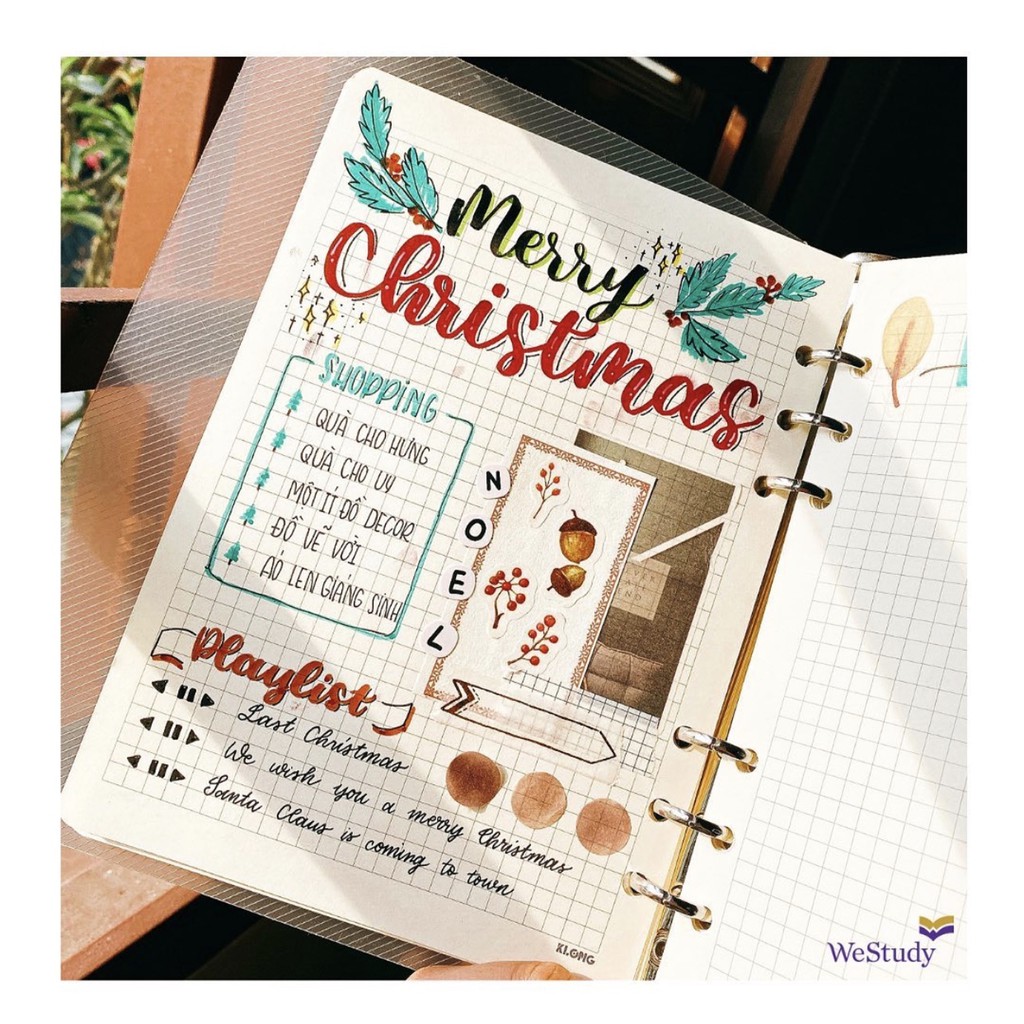 Merry
Christmas
SHOPPING
QUÀ CHO HƯNG
QUÀ CHO UY
MỘT TÍ ĐỒ DECOR
ĐỒ VẼ VỜI
ÁO LEN GIÁNG SINH
NOEL
Playlist
Last Christmas
We wish you a merry Christmas
Santa Claus is coming to town
KLONG
WeStudy